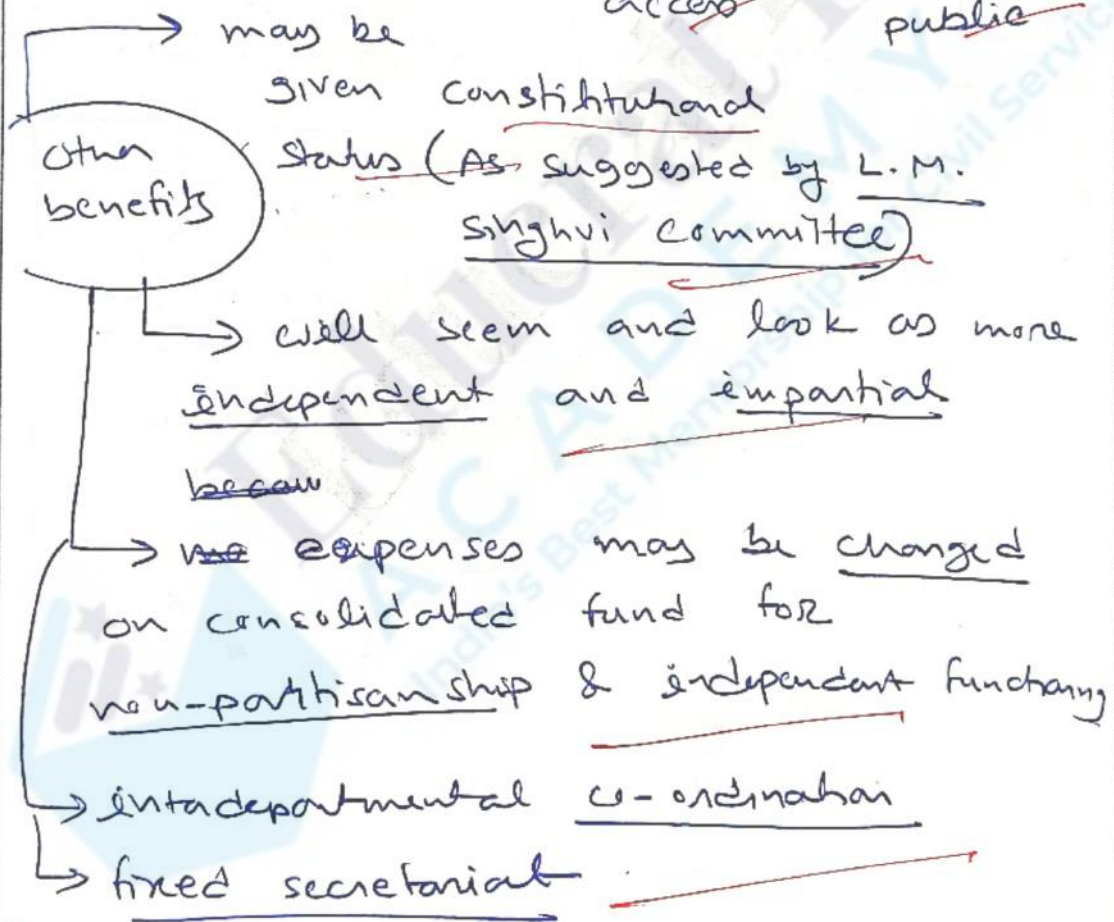 access public
may be
given constitutional
Other
benefits
Status (As suggested by L.M.
Singhvi Committee)
will seem and look as more
independent and impartial
becau
expenses may be charged
on consolidated fund for
non-partisanship & independent functioning
interdepartmental co-ordination
fixed secretariat
Educrat
ACADEMY
India's Best Mentorship
Civil Service